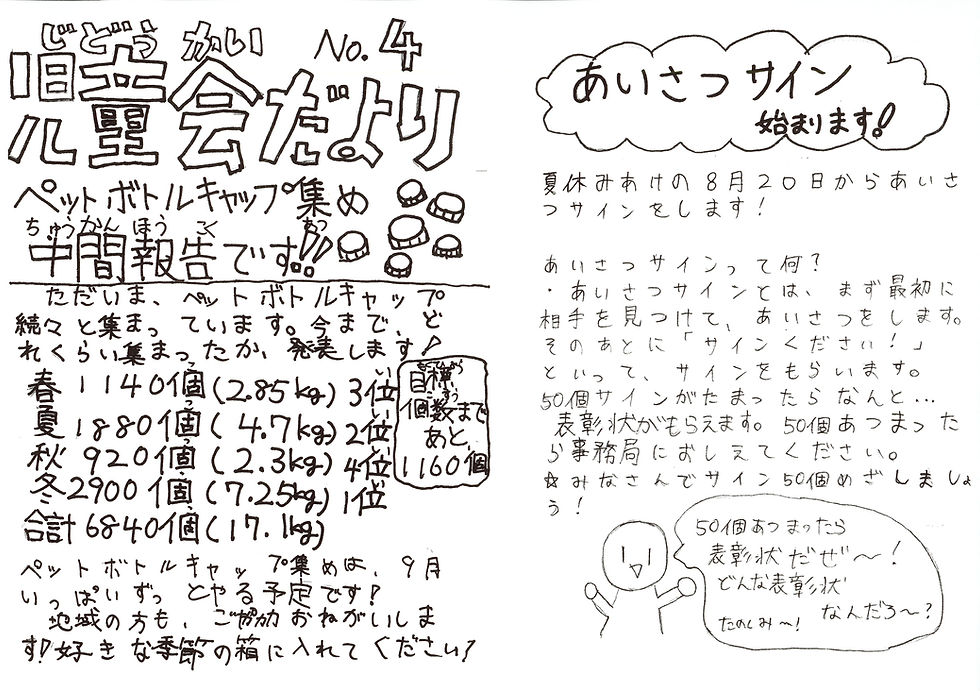 じどう かい No.4
児童会だより
ペットボトルキャップ集め
ちゅうかんほうこく
中間報告です!!
ただいま、ペットボトルキャップ
続々と集まっています。今まで、ど
れくらい集まったか、発表します!
春 1140個(2.85kg)3位
夏 1880個(4.7kg)2位
秋 920個(2.3kg)4位
冬2900個(7.25kg)1位
合計6840個(17.1kg)
目標
個数まで
あと
1160個
ペットボトルキャップ集めは、9月
いっぱいずっとやる予定です!
地域の方も、ご協力おねがいしま
す!好きな季節の箱に入れてください!
あいさつサイン
始まります!
夏休みあけの8月20日からあいさ
つサインをします!
あいさつサインって何?
・あいさつサインとは、まず最初に
相手を見つけて、あいさつをします。
そのあとに「サインください!」
といって、サインをもらいます。
50個サインがたまったらなんと…
表彰状がもらえます。50個あつまった
ら事務局におしえてください。
☆みなさんでサイン50個めざしましょ
う!
50個あつまったら
表彰状だぜ〜!
どんな表彰状
なんだろ〜?
たのしみ〜!